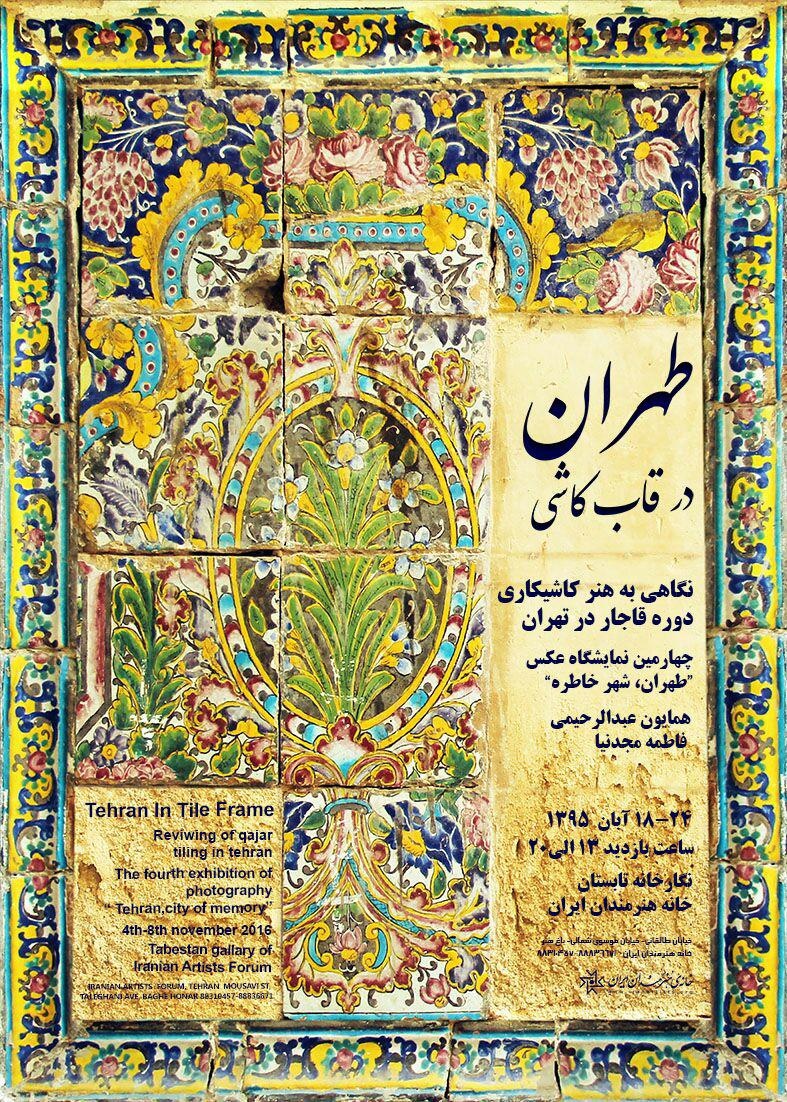 طهران
در قاب کاشی
نگاهی به هنر کاشیکاری
دوره قاجار در تهران
چهارمین نمایشگاه عکس
”طهران، شهر خاطره“
همایون عبدالرحیمی
فاطمه مجدنیا
۱۸-۲۴ آبان ۱۳۹۵
ساعت بازدید ۱۳ الی ۲۰
نگارخانه تابستان
خانه هنرمندان ایران
خیابان طالقانی- خیابان موسوی شمالی- باغ هنر
خانه هنرمندان ایران
خانه‌ی هنرمندان ایران
Tehran In Tile Frame
Reviwing of qajar
tiling in tehran
The fourth exhibition of
photography
“ Tehran,city of memory”
4th-8th november 2016
Tabestan gallary of
Iranian Artists Forum
IRANIAN ARTISTS FORUM, TEHRAN MOUSAVI ST,
TALEGHANI AVE, BAGHE HONAR 88310457-88836671